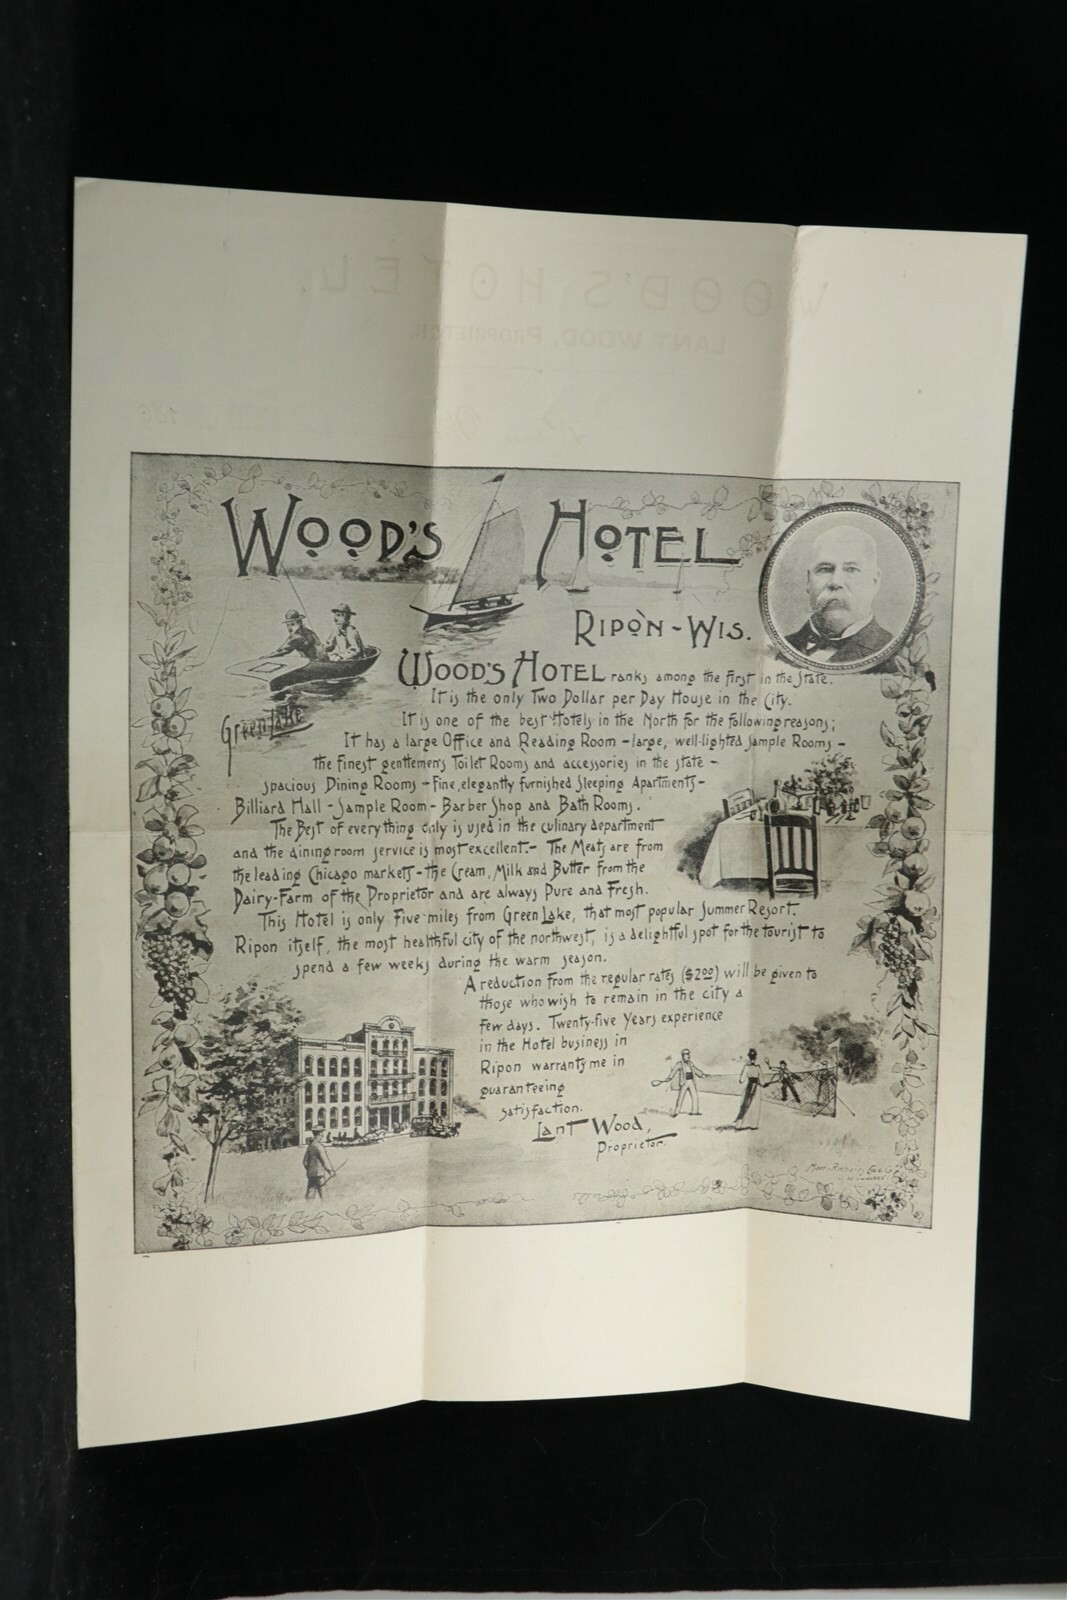 WOOD'S HOTEL.
LANT WOOD, PROPRIETOR.
WOOD'S HOTEL
RIPON - WIS.
Green Lake
WOOD'S HOTEL ranks among the First in the State.
It is the only Two Dollar per Day House in the City.
It is one of the best Hotels in the North for the following reasons;
It has a large Office and Reading Room - large, well-lighted Sample Rooms -
the finest gentlemens Toilet Rooms and accessories in the state -
spacious Dining Rooms - Fine, elegantly furnished Sleeping Apartments -
Billiard Hall - Sample Room - Barber Shop and Bath Rooms.
The Best of everything only is used in the culinary department
and the diningroom service is most excellent. - The Meats are from
the leading Chicago markets - the Cream, Milk and Butter from the
Dairy-Farm of the Proprietor and are always Pure and Fresh.
This Hotel is only Five miles from Green Lake, that most popular Summer Resort.
Ripon itself, the most healthful city of the northwest, is a delightful spot for the tourist to
spend a few weeks during the warm season.
A reduction from the regular rates ($2.00) will be given to
those who wish to remain in the city a
few days. Twenty-five Years experience
in the Hotel business in
Ripon warrants me in
guaranteeing
satisfaction.
Lant Wood,
Proprietor.